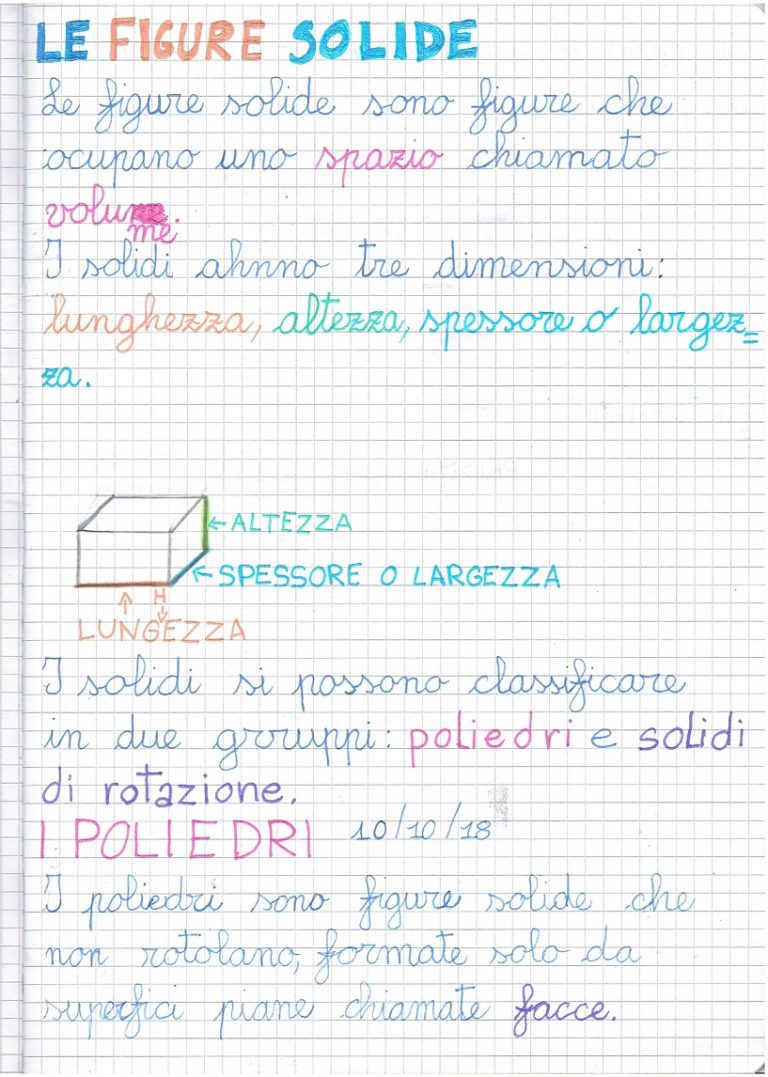 LE FIGURE SOLIDE
Le figure solide sono figure che
ocupano uno spazio chiamato
volume.
I solidi ahnno tre dimensioni:
lunghezza, altezza, spessore o largez=
za.
← ALTEZZA
← SPESSORE O LARGEZZA
H
LUNGEZZA
I solidi si possono classificare
in due grruppi: poliedri e solidi
di rotazione.
I POLIEDRI 10/10/18
I poliedri sono figure solide che
non rotolano, formate solo da
superfici piane chiamate facce.